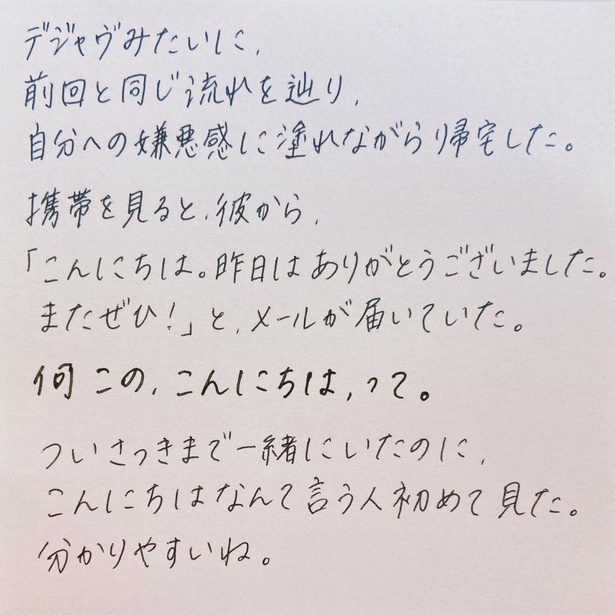 デジャヴみたいに、
前回と同じ流れを辿り、
自分への嫌悪感に塗れながら帰宅した。
携帯を見ると、彼から、
「こんにちは。昨日はありがとうございました。
またぜひ!」と、メールが届いていた。
何この、こんにちは、って。
ついさっきまで一緒にいたのに、
こんにちはなんて言う人初めて見た。
分かりやすいね。